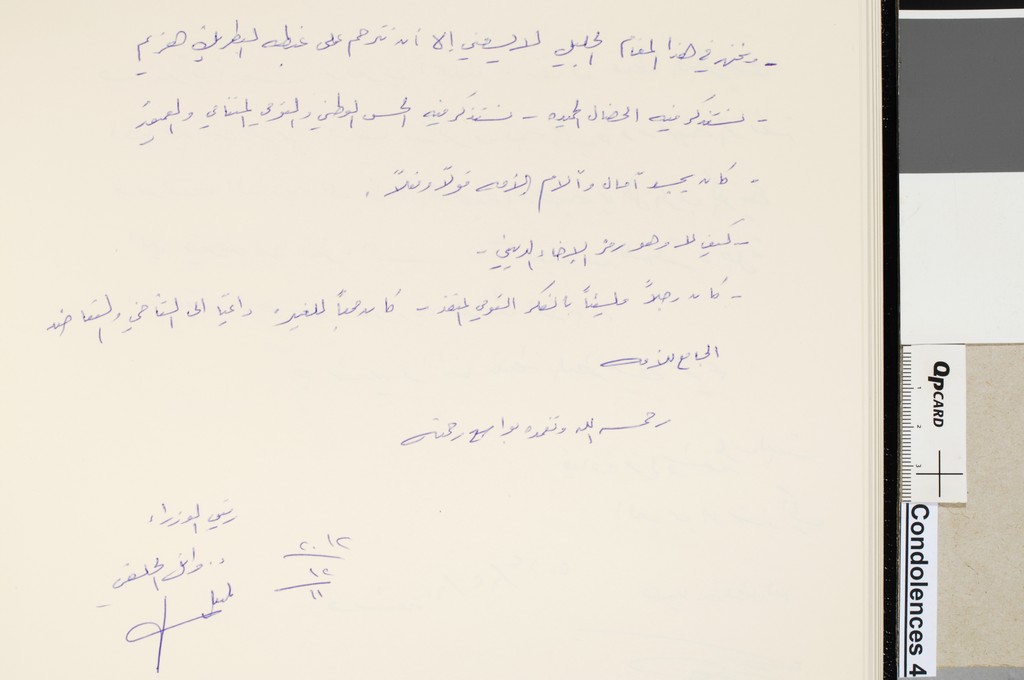 - ونحن في هذا المقام الجليل لا يسعني إلا أن نترحم على غبطة البطريرك هزيم
- نستذكر فيه الخصال الحميده - نستذكر فيه الحس الوطني والقومي المتنامي والعميق
- كان يجسد آمال وآلام الأمه قولاً وفعلاً .
- كيف لا وهو رمز الإخاء الديني -
- كان رجلاً مليئاً بالفكر القومي المتقد - كان محباً للغير، داعياً الى التآخي والتعاضد
الجامع للأمه
رحمه الله وتغمده بواسع رحمته
رئيس الوزراء
د. وائل الحلقي
٢٠١٢
١٢
١١
QPCARD
1
2
3
Condolences 4